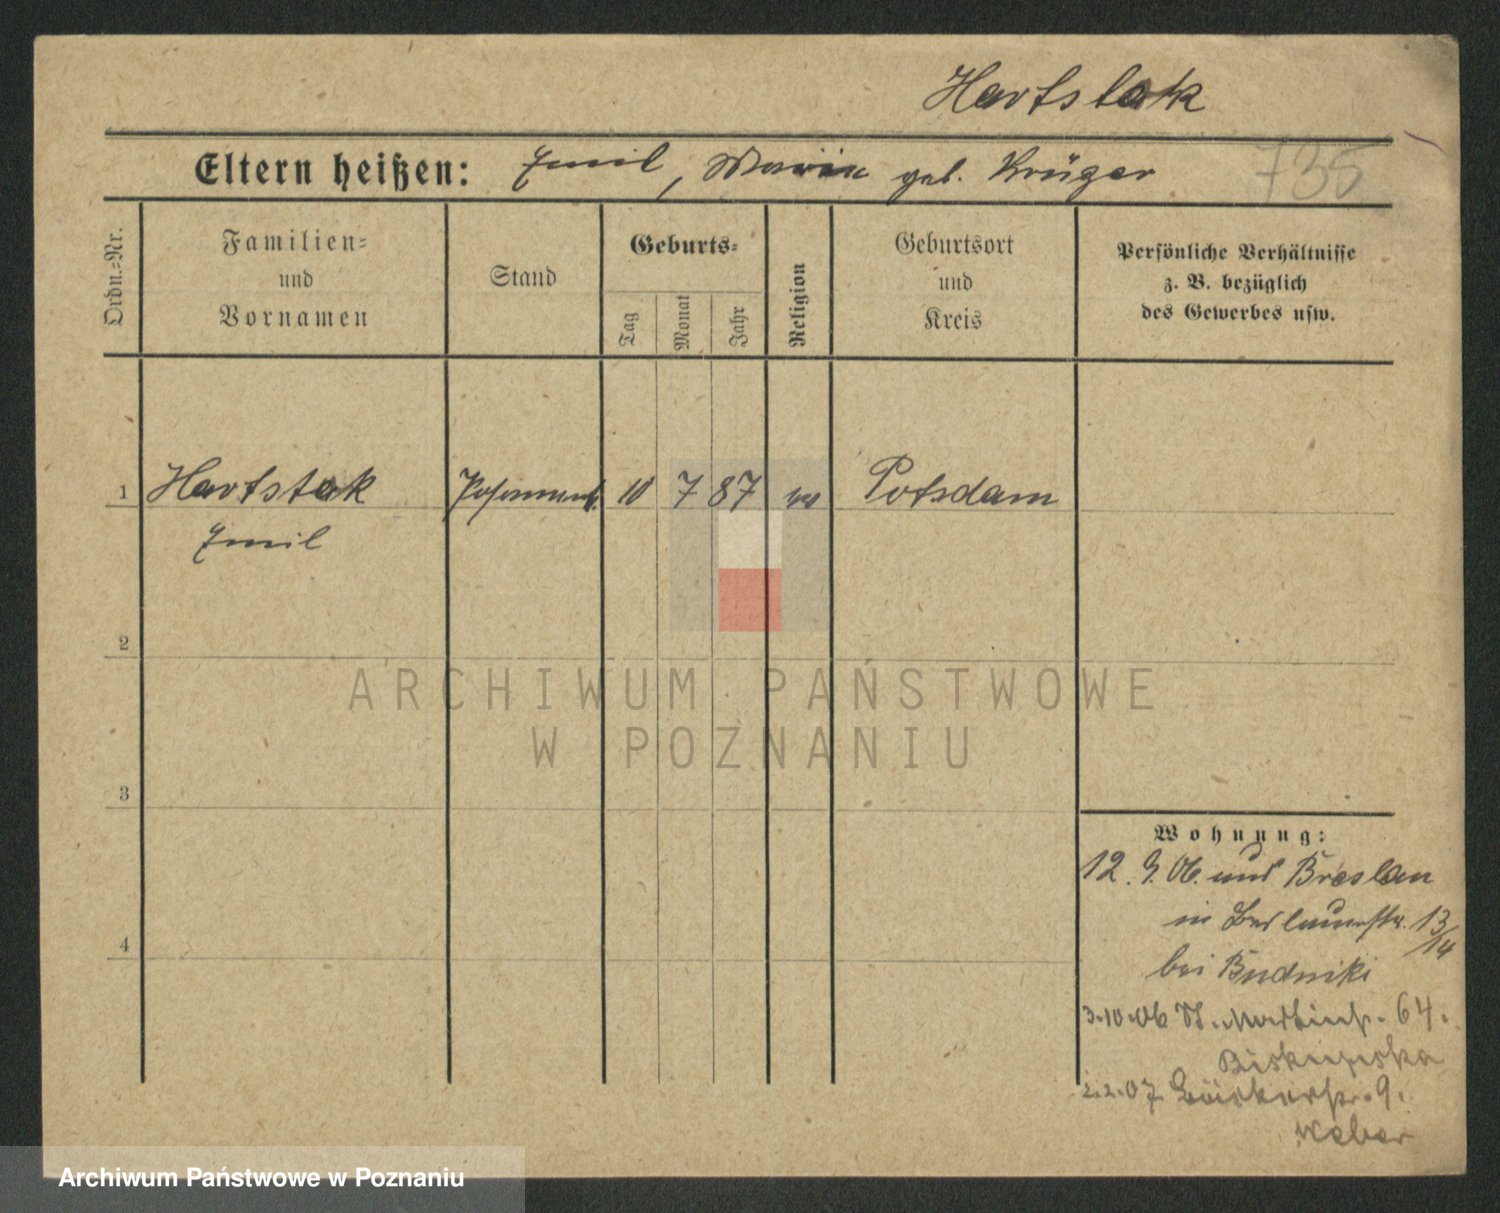 Hartstok
Eltern heißen: Emil, Maria geb. Krüger
735
Ordn.=Nr.
Familien=
und
Vornamen
Stand
Geburts=
Tag
Monat
Jahr
Religion
Geburtsort
und
Kreis
Persönliche Verhältnisse
z. B. bezüglich
des Gewerbes usw.
1 Hartstok 10 7 87 ev Potsdam
Emil
2
3
4
ARCHIWUM PAŃSTWOWE
W POZNANIU
Wohnung:
12. 9. 06. aus Breslau
in 13/14
bei Budniki
3.10.06 St. Martinstr. 64.
Biskupska
2.2.07 Bäckerstr. 9.
Weber
Archiwum Państwowe w Poznaniu